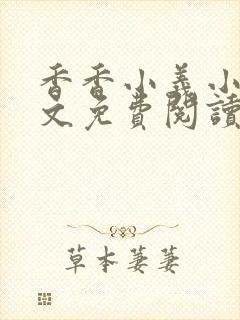 香香小義小
文免費閱讀
草本萋萋